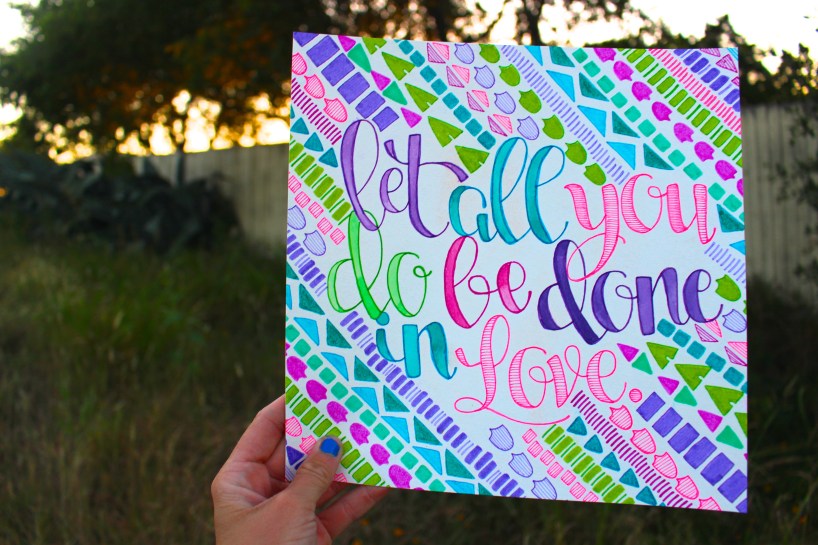 let all you
do be done
in Love.